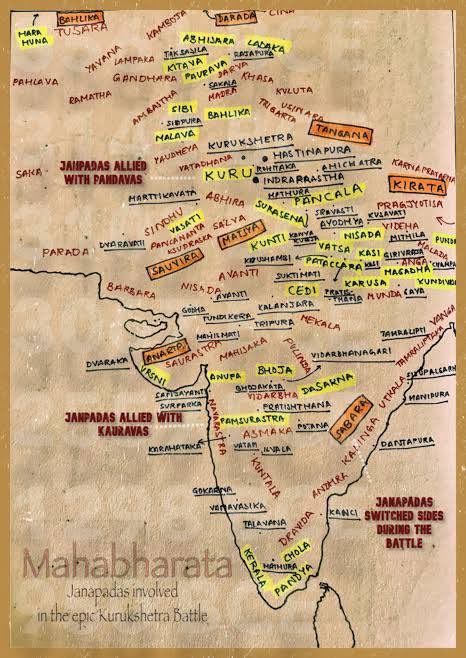 BAHLIKA
DARADA
CINA
KAMBOJA
HARA
HUNA
TUSARA
ABHISARA
LADAKA
YAVANA
TAKSASILA
RAJAPURA
LAMPAKA
KITAVA
DARVA
PAHLAVA
GANDHARA
PAURAVA
KHASA
SAKALA
MADRA
KULUTA
RAMATHA
AMBASTHA
USINARA
SIBI
TRIGARTA
BAHLIKA
SIDPURA
MALAVA
TANGANA
KURUKSHETRA
YAUDHEYA
HASTINAPURA
VATADHANA
SAKA
JANPADAS ALLIED
WITH PANDAVAS
KURU
ROHITAKA
AHICHATRA
INDRAPRASTHA
KIRATA
MATHURA
MARTTIKAVATA
ABHIRA
PANCALA
SURASENA
PRAGJYOTISA
SINDHU
SRAVASTI
VASATI
SALVA
AYODHYA
KUSAVATI
PANCANADA
VIDEHA
KSUDRAKA
MATSYA
KUNTI
NISADA
MITHILA
DVARAVATI
PARADA
VATSA
KASI
GIRIVRAJA
MALADA
SAUVIRA
KAUSHAMBI
PATACCARA
KASI
ANGA
AVANTI
SUKTIMATI
MAGADHA
BARBARA
NISADA
CEDI
KARUSA
AVANTI
MUNDA
GAYA
GODHA
KALANJARA
TUNDIKERA
TRIPURA
MEKALA
VANGA
MAHISMATI
TAMRALIPTI
TAMRALIPTAKA
ANARTA
SAURASTRA
MAHISAKA
PULINDA
VIDARBHANAGARI
DVARAKA
VRSNI
ANUPA
BHOJA
BHOJAKATA
DASARNA
UTKALA
VIDARBHA
SURPARKA
NAVARASTRA
PRATISHTHANA
MANIPURA
JANPADAS ALLIED WITH
KAURAVAS
PAMSURASTRA
SABARA
ASMAKA
POTANA
KALINGA
KARAHATAKA
VATAPI
ILVALA
DANTAPURA
KUNTALA
GOKARNA
ANDHRA
VANAVASIKA
KANCI
JANAPADAS
SWITCHED SIDES
DURING THE
BATTLE
TALAVANA
DRAVIDA
CHOLA
KERALA
MATHURA
PANDYA
Mahabharata
Janapadas involved
in the epic Kurukshetra Battle